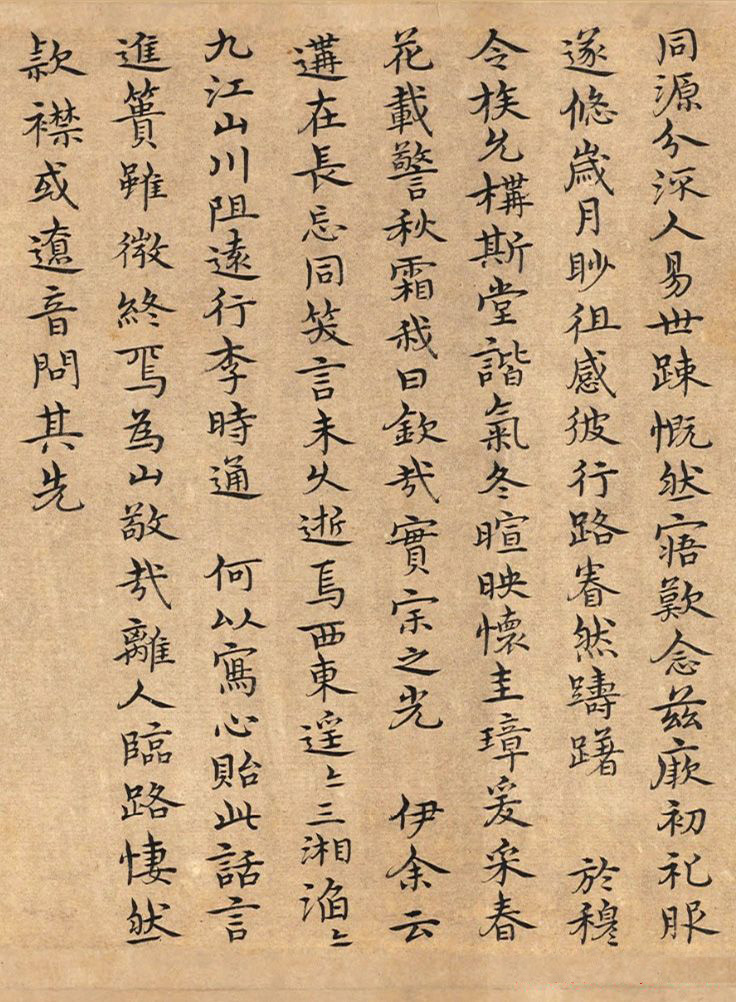 同源分流人易世踈慨然寤歎念茲厥初礼服
遂悠歲月眇徂感彼行路眷然躊躇　於穆
令族允構斯堂諧氣冬暄映懷圭璋爰采春
花載警秋霜我曰欽哉實宗之光　伊余云
遘在長忘同笑言未久逝焉西東遥〻三湘滔〻
九江山川阻遠行李時通　何以寫心貽此話言
進簣雖微終焉為山敬哉離人臨路悽然
款襟或遼音問其先